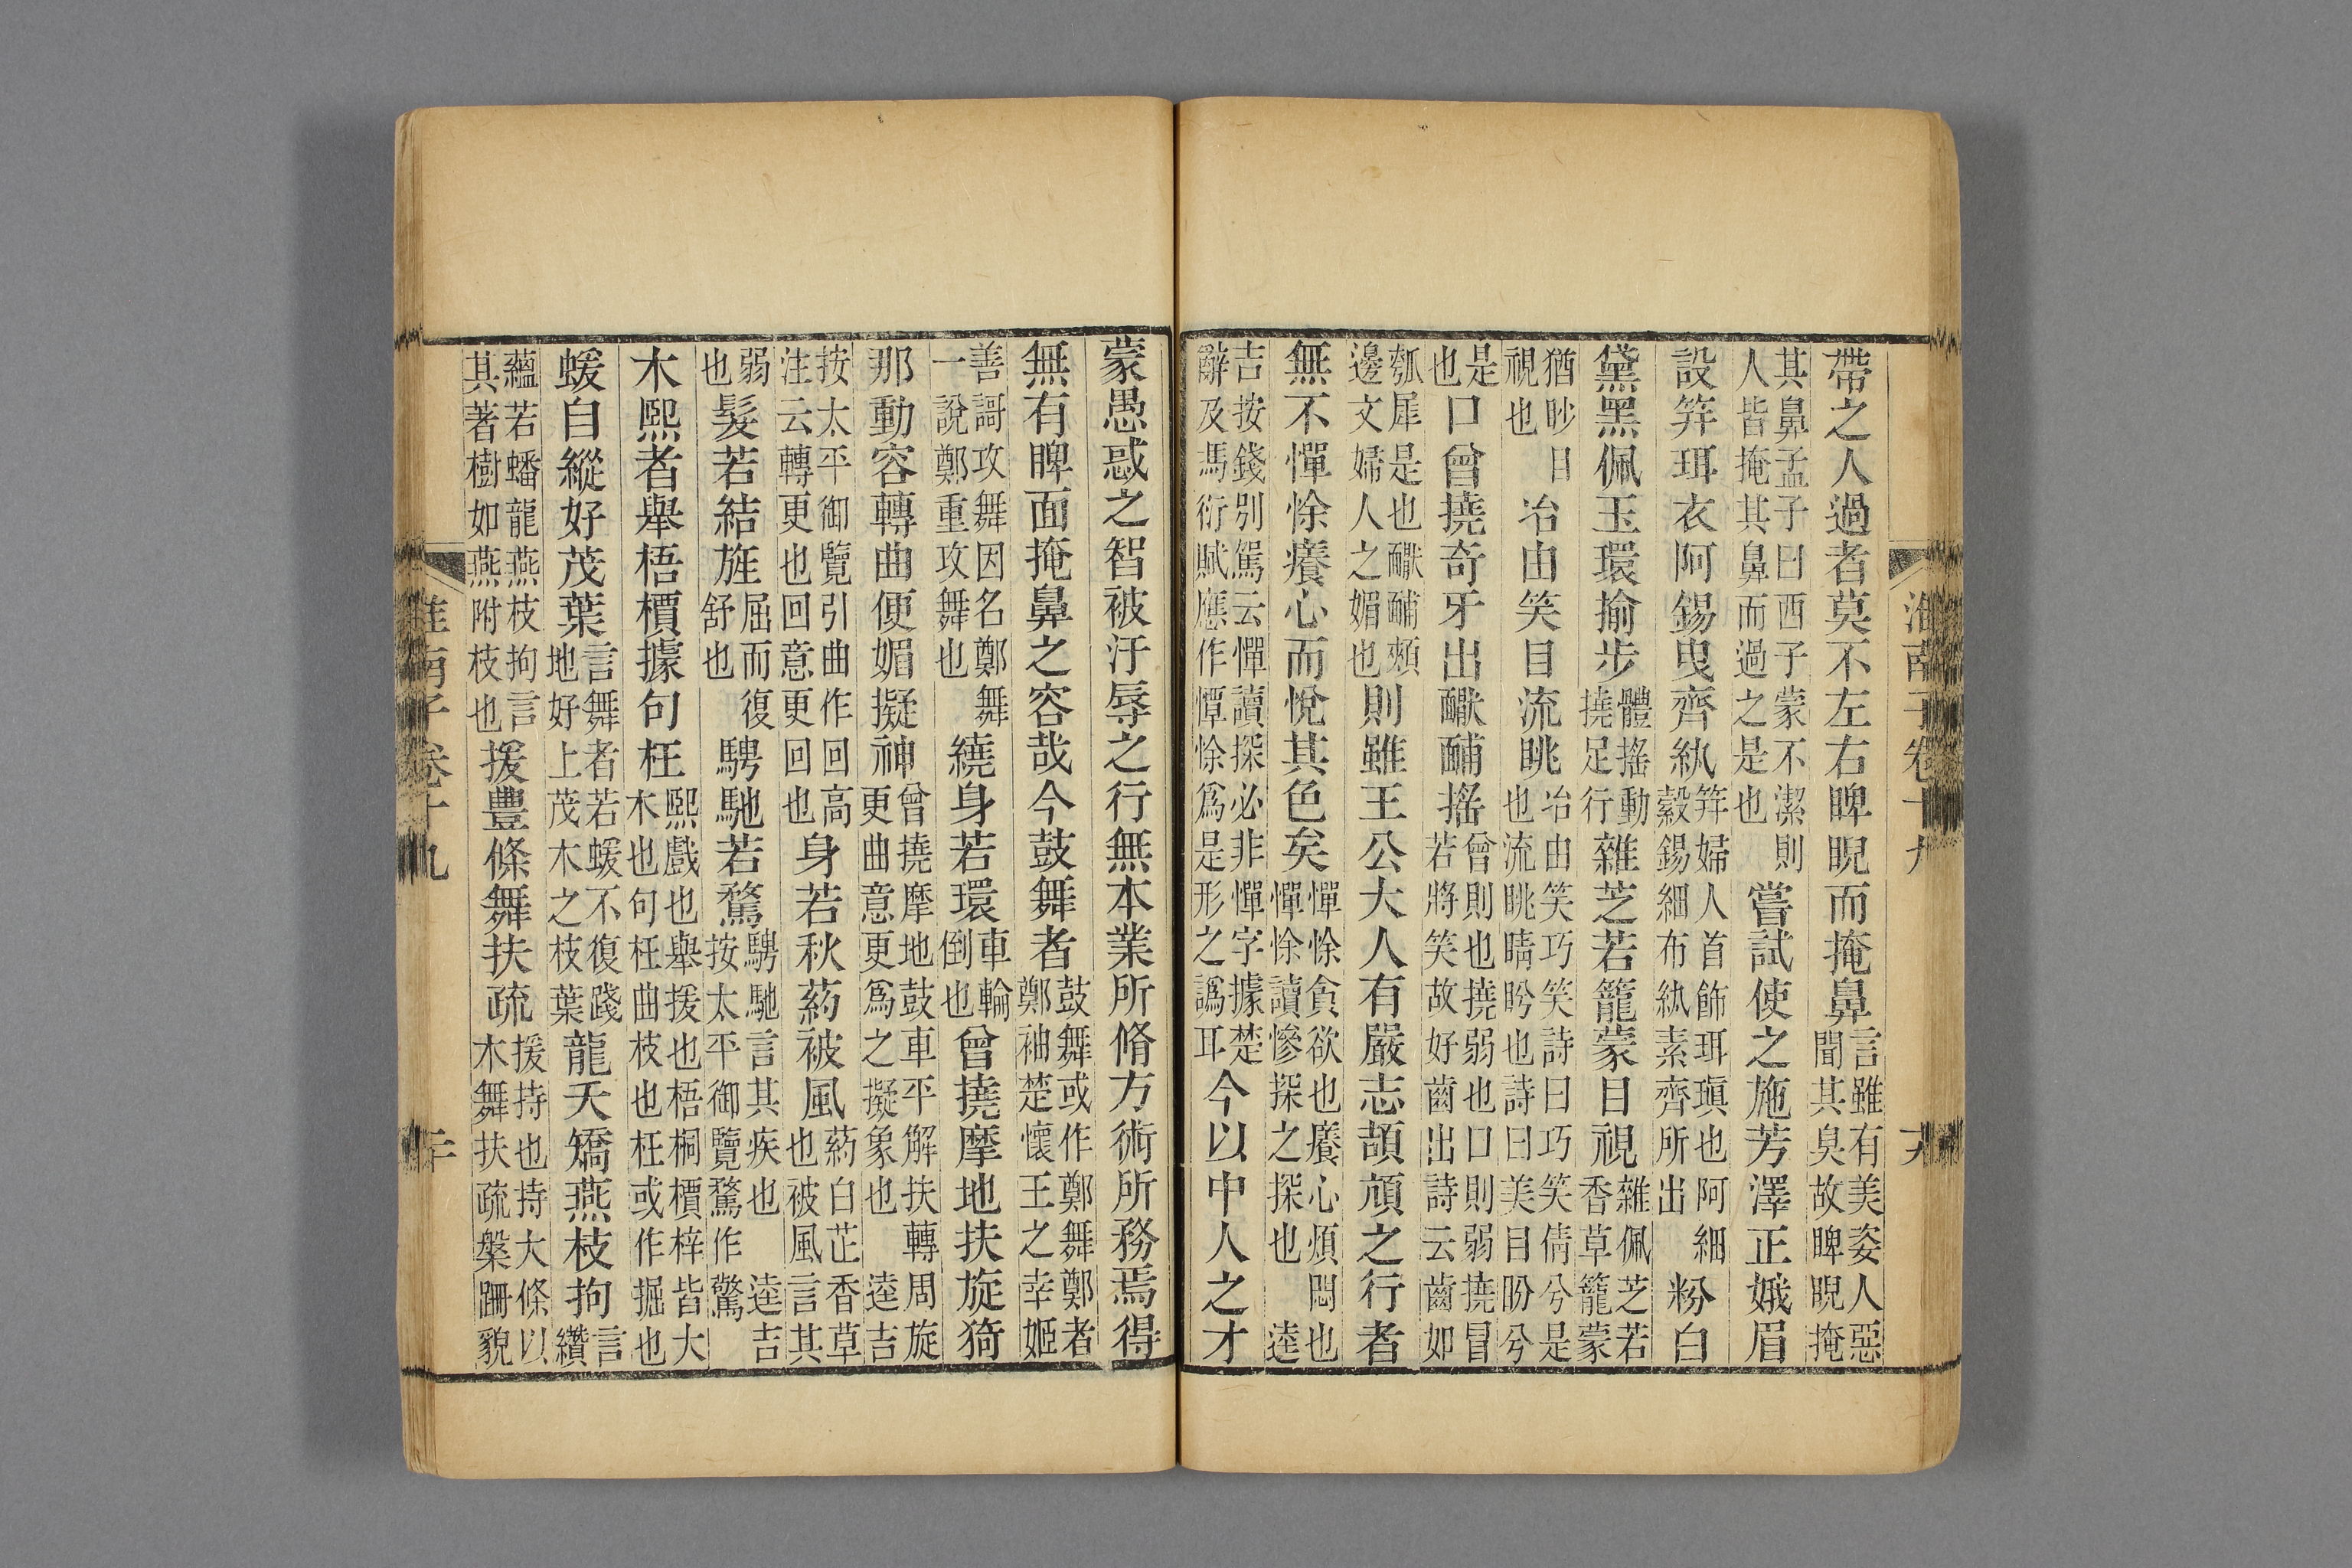 帶之人過者莫不左右睥睨而掩鼻言雖有美姿人惡聞其臭故睥睨掩
其鼻孟子曰西子蒙不潔則人皆掩其鼻而過之是也嘗試使之施芳澤正娥眉
設笄珥衣阿錫曳齊紈笄婦人首飾珥瑱也阿細縠錫細布紈素齊所出粉白
黛黑佩玉環揄步體搖動撓足行雜芝若籠蒙目視雜佩芝若香草籠蒙
猶眇目視也冶由笑目流眺冶由笑巧笑詩曰巧笑倩兮是也流眺睛眄也詩曰美目盼兮
是也口曾撓奇牙出酺搖曾則也撓弱也口則弱撓冒若將笑故好齒出詩云齒如
瓠犀是也酺頰邊文婦人之媚也則雖王公大人有嚴志頡頏之行者
無不憚悇癢心而悅其色矣憚悇貪欲也癢心煩悶也憚悇讀慘探之探也逵
吉按錢別駕云憚讀探必非憚字據楚辭及馮衍賦應作憛悇爲是形之譌耳今以中人之才
淮南子卷十九
十九
蒙愚惑之智被汙辱之行無本業所脩方術所務焉得
無有睥面掩鼻之容哉今鼓舞者鼓舞或作鄭舞鄭者鄭袖楚懷王之幸姬
善謌攻舞因名鄭舞一說鄭重攻舞也繞身若環車輪倒也曾撓摩地扶旋猗
那動容轉曲便媚擬神曾撓摩地鼓車平解扶轉周旋更曲意更爲之擬象也逵吉
按太平御覽引曲作回高注云轉更也回意更回也身若秋葯被風葯白芷香草也被風言其
弱也髮若結旌屈而復舒也騁馳若騖騁馳言其疾也逵吉按太平御覽騖作驚
木熙者舉梧檟據句枉熙戲也舉援也梧桐檟梓皆大木也句枉曲枝也枉或作掘也
蝯自縱好茂葉言舞者若蝯不復踐地好上茂木之枝葉龍夭矯燕枝拘言纘
蘊若蟠龍燕枝拘言其著樹如燕附枝也援豊條舞扶疏援持也持大條以木舞扶疏槃跚貌
淮南子卷十九
二十